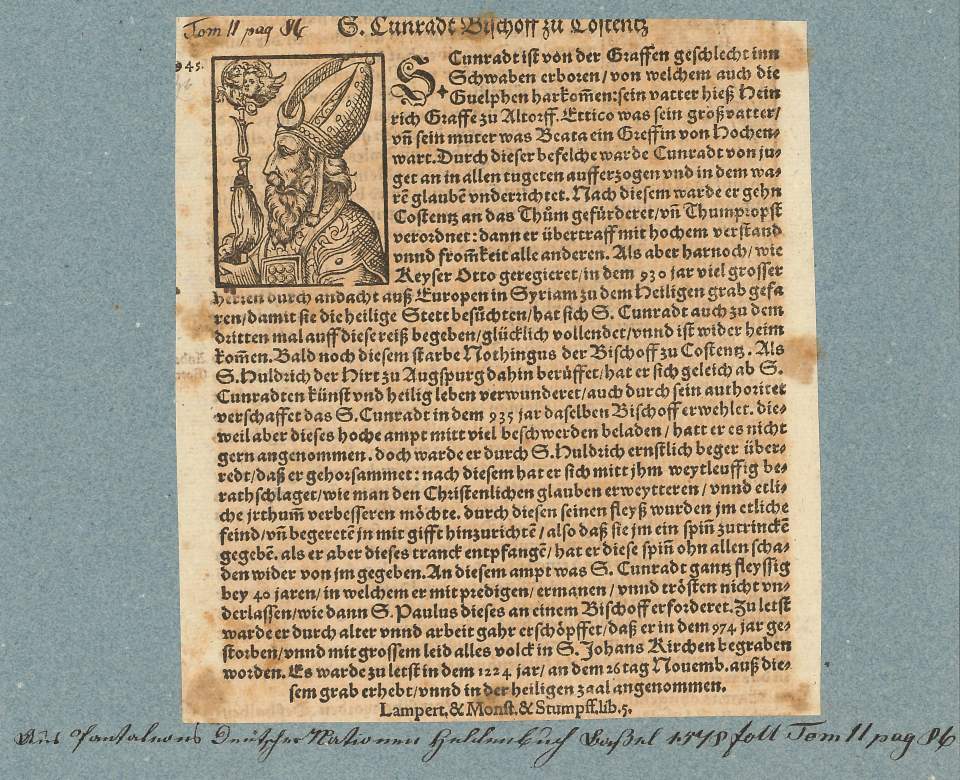 Tom 11 pag 86
S. Cunradt Bischoff zu Costentz
945.
S. Cunradt ist von der Graffen geschlecht inn
Schwaben erboren/von welchem auch die
Guelphen harkom̄en:sein vatter hieß Hein
rich Graffe zu Altorff. Ettico was sein großvatter/
vn̄ sein muter was Beata ein Greffin von Hochen⸗
wart. Durch dieser befelche warde Cunradt von ju⸗
get an in allen tugeten aufferzogen vnd in dem wa⸗
rē glaubē vnderrichtet. Nach diesem warde er gehn
Costentz an das Thům gefürderet/vn̄ Thumpropst
verordnet: dann er übertraff mit hochem verstand
vnnd from̄keit alle anderen. Als aber harnoch/wie
Keyser Otto geregieret/in dem 930 jar viel grosser
herren durch andacht auß Europen in Syriam zu dem Heiligen grab gefa
ren/damit sie die heilige Stett besůchten/hat sich S. Cunradt auch zu dem
dritten mal auff diese reiß begeben/glücklich vollendet/vnnd ist wider heim
kom̄en. Bald noch diesem starbe Nothingus der Bischoff zu Costentz. Als
S. Huldrich der Hirt zu Augspurg dahin berüffet/hat er sich geleich ab S.
Cunradten künst vnd heilig leben verwunderet/auch durch sein authoritet
verschaffet das S. Cunradt in dem 935 jar daselben Bischoff erwehlet. die⸗
weil aber dieses hoche ampt mitt viel beschwerden beladen/ hatt er es nicht
gern angenommen. doch warde er durch S. Huldrich ernstlich beger über⸗
redt/daß er gehorsammet: nach diesem hat er sich mitt jhm weytleuffig be⸗
rathschlaget/wie man den Christenlichen glauben erweytteren/vnnd etli⸗
che jrthum̄ verbesseren möchte. durch diesen seinen fleyß wurden jm etliche
feind/vn̄ begeretē jn mit gifft hinzurichtē/also daß sie jm ein spin̄ zutrinckē
gegebē. als er aber dieses tranck entpfangē/hat er diese spin̄ ohn allen scha⸗
den wider von jm gegeben. An diesem ampt was S. Cunradt gantz fleyssig
bey 40 jaren/in welchem er mit predigen/ermanen/vnnd trösten nicht vn⸗
derlassen/wie dann S. Paulus dieses an einem Bischoff erforderet. Zu letst
warde er durch alter vnnd arbeit gahr erschöpffet/daß er in dem 974 jar ge⸗
storben/vnnd mit grossem leid alles volck in S. Johans Kirchen begraben
worden. Es warde zu letst in dem 1224 jar/an dem 26 tag Nouemb. auß die⸗
sem grab erhebt/vnnd in der heiligen zaal angenommen.
Lampert, & Monst. & Stumpff. lib. 5.
Aus Pantaleons Deutscher Nationen Heldenbuch Baßel 1578 foll Tom 11 pag 86